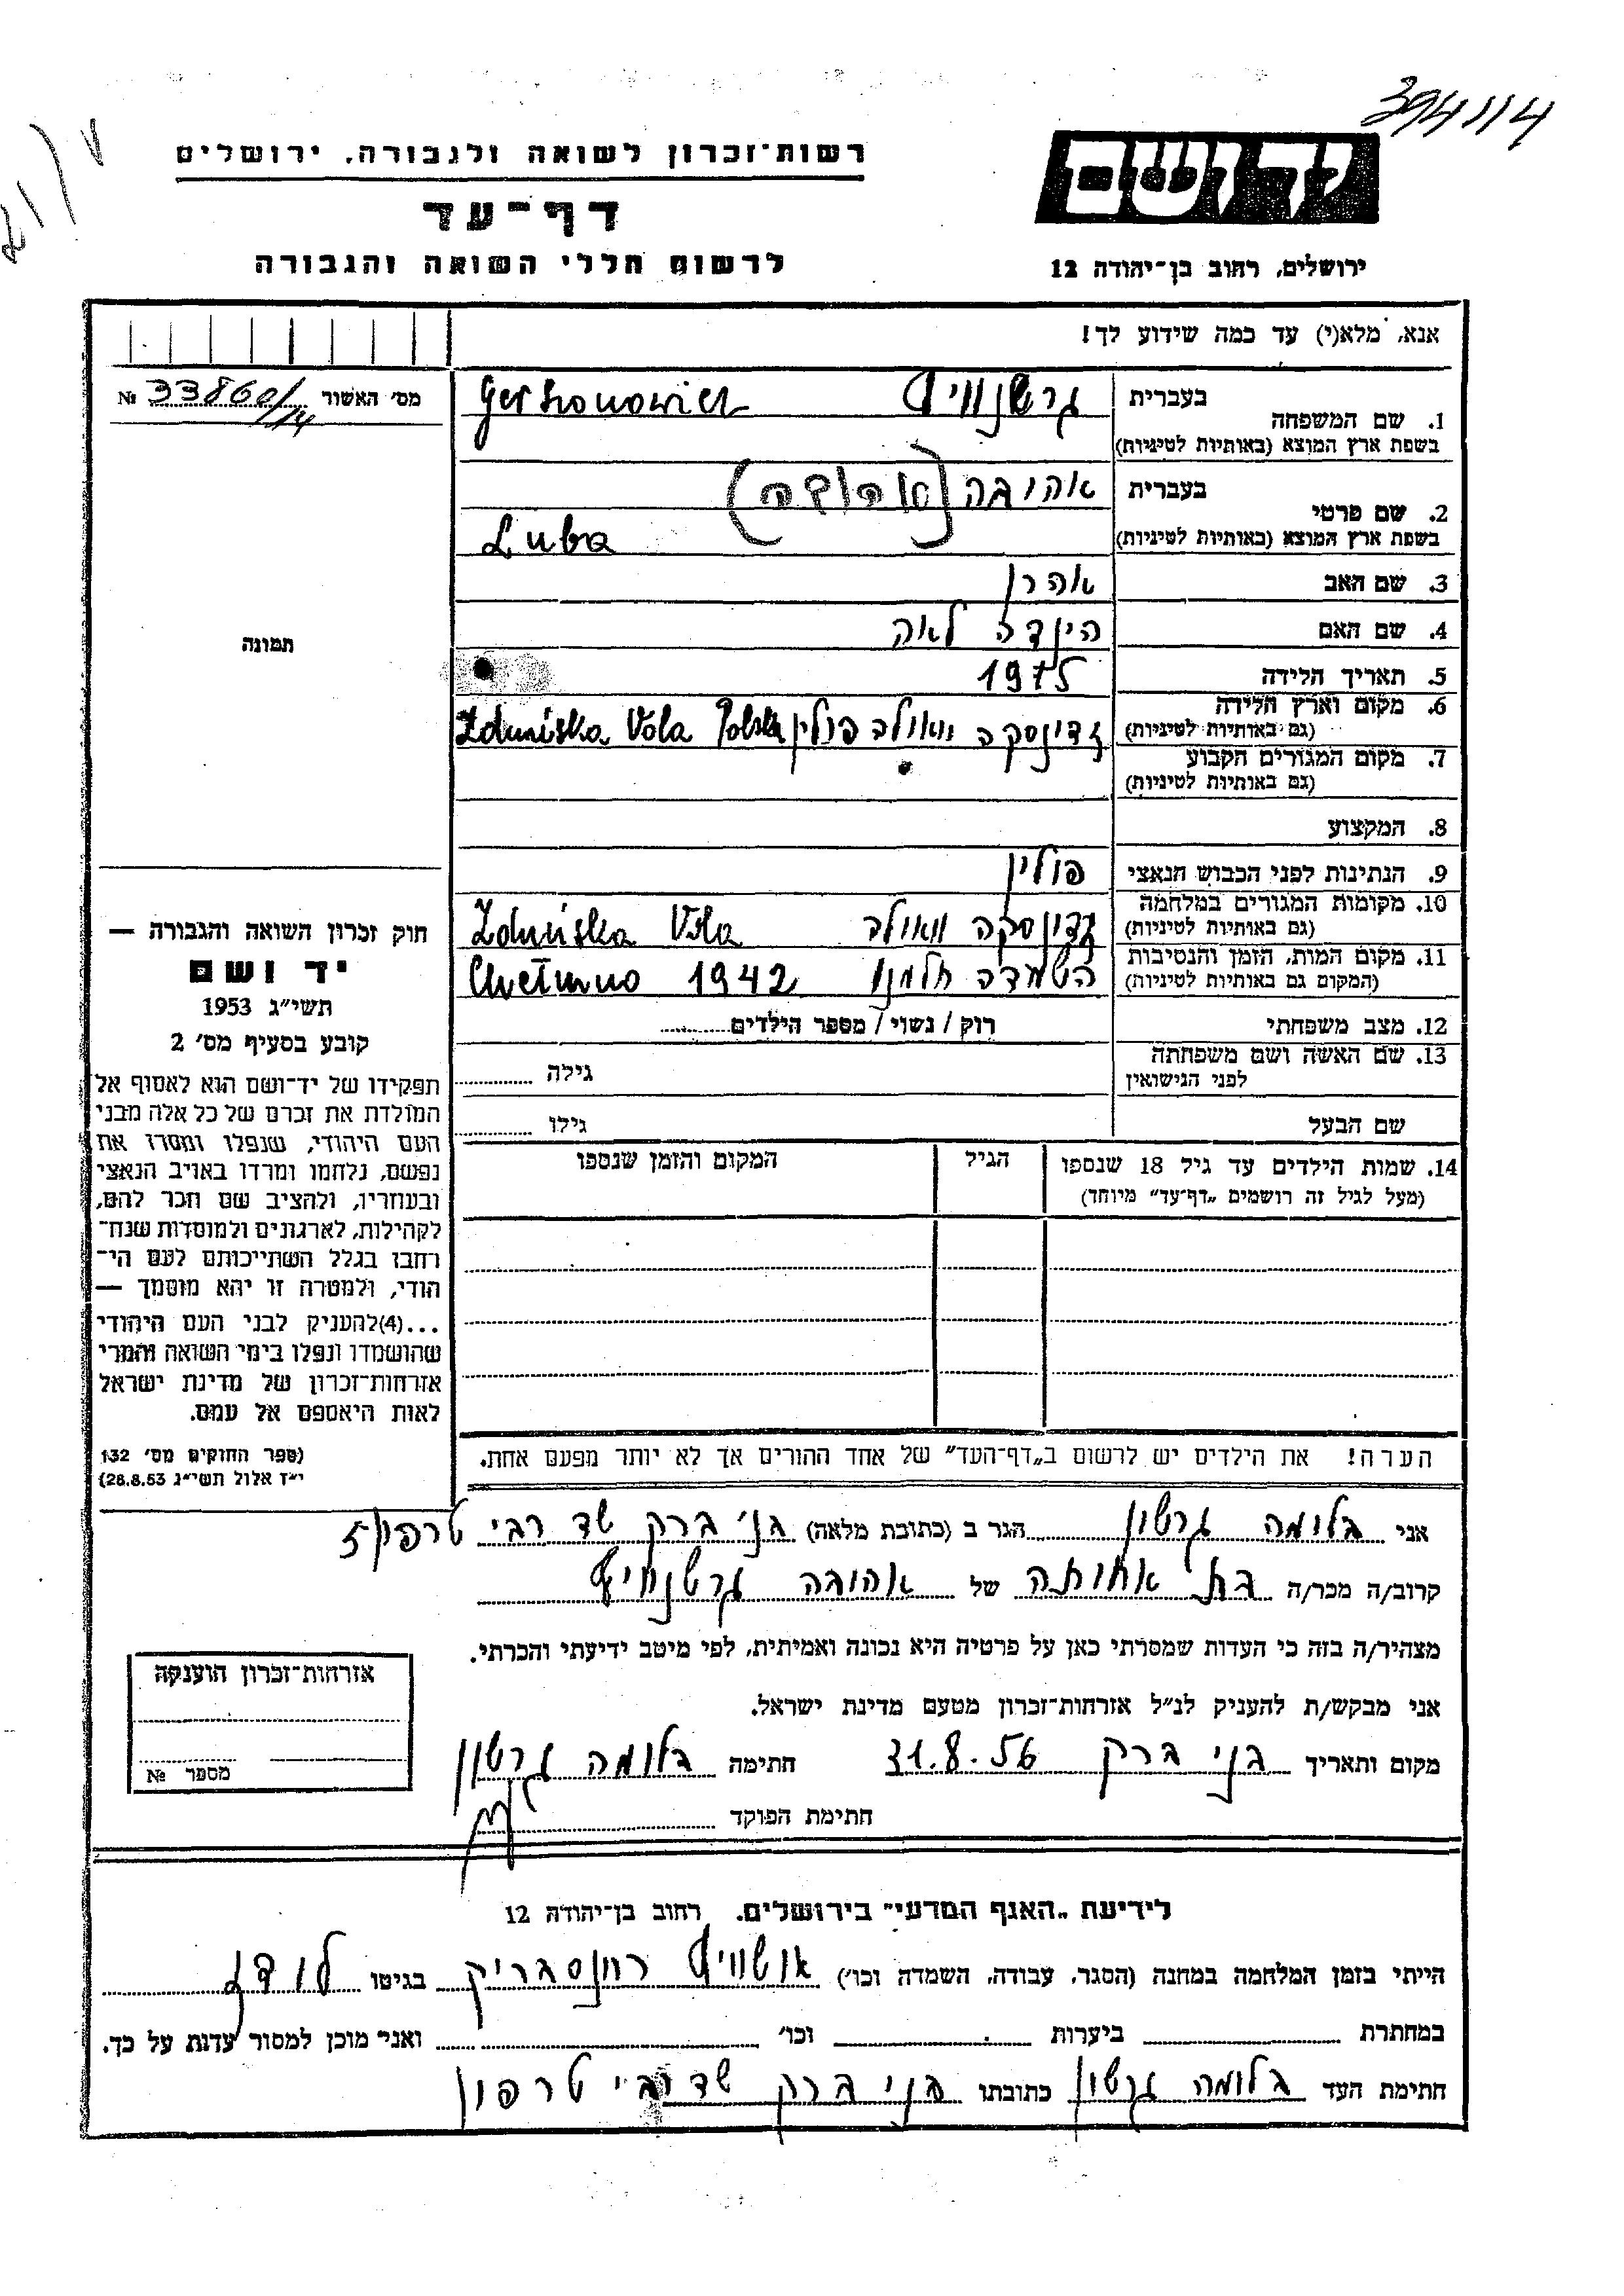 394114
רשות־זכרון לשואה ולגבורה, ירושלים
יד ושם
דף־עד
לרשום חללי השואה והגבורה
ירושלים, רחוב בן־יהודה 12
אנא, מלא(י) עד כמה שידוע לך!
מס׳ האשור № 33860/14
בעברית גרשנוויץ Gerszonowicz
1. שם המשפחה
בשפת ארץ המוצא (באותיות לטיניות)
בעברית אהובה (אהובה)
2. שם פרטי
בשפת ארץ המוצא (באותיות לטיניות) Luba
3. שם האב אהרן
4. שם האם הינדה לאה
5. תאריך הלידה
6. מקום וארץ הלידה
(גם באותיות לטיניות) זדונסקה וואולה פולין Zduńska Vola Polska
7. מקום המגורים הקבוע
(גם באותיות לטיניות)
8. המקצוע
9. הנתינות לפני הכבוש הנאצי פולין
10. מקומות המגורים במלחמה
(גם באותיות לטיניות) זדונסקה וואולה Zduńska Vola
11. מקום המות, הזמן והנסיבות
(המקום גם באותיות לטיניות) השמדה חלמנו 1942 Chełmno
12. מצב משפחתי רוק / נשוי / מספר הילדים
13. שם האשה ושם משפחתה
לפני הנישואין גילה
שם הבעל גילו
14. שמות הילדים עד גיל 18 שנספו הגיל המקום והזמן שנספו
(מעל לגיל זה רושמים „דף־עד״ מיוחד)
הערה! את הילדים יש לרשום ב„דף־העד״ של אחד ההורים אך לא יותר מפעם אחת.
תמונה
חוק זכרון השואה והגבורה —
יד ושם
תשי״ג 1953
קובע בסעיף מס׳ 2
תפקידו של יד־ושם הוא לאסוף אל
המולדת את זכרם של כל אלה מבני
העם היהודי, שנפלו ומסרו את
נפשם, נלחמו ומרדו באויב הנאצי
ובעוזריו, ולהציב שם וזכר להם,
לקהילות, לארגונים ולמוסדות שנח־
רבו בגלל השתייכותם לעם הי־
הודי, ולמטרה זו יהא מוסמך —
...(4)להעניק לבני העם היהודי
שהושמדו ונפלו בימי השואה והמרי
אזרחות־זכרון של מדינת ישראל
לאות היאספם אל עמם.
(ספר החוקים מס׳ 132
י״ז אלול תשי״ג 28.8.53)
אני בלומה גרשון הגר ב (כתובת מלאה) בני ברק שד רבי טרפון 5
קרוב/ה מכר/ה בת אחותה של אהובה גרשנוויץ
מצהיר/ה בזה כי העדות שמסרתי כאן על פרטיה היא נכונה ואמיתית, לפי מיטב ידיעתי והכרתי.
אני מבקש/ת להעניק לנ״ל אזרחות־זכרון מטעם מדינת ישראל.
מקום ותאריך בני ברק 31.8.56 חתימה בלומה גרשון
חתימת הפוקד
אזרחות־זכרון הוענקה
מספר №
לידיעת „האגף המדעי״ בירושלים, רחוב בן־יהודה 12
הייתי בזמן המלחמה במחנה (הסגר, עבודה, השמדה וכו׳) אושוויץ רוונסבריק בגיטו לודז
במחתרת ביערות וכו׳ ואני מוכן למסור עדות על כך.
חתימת העד בלומה גרשון כתובתו בני ברק שד רבי טרפון